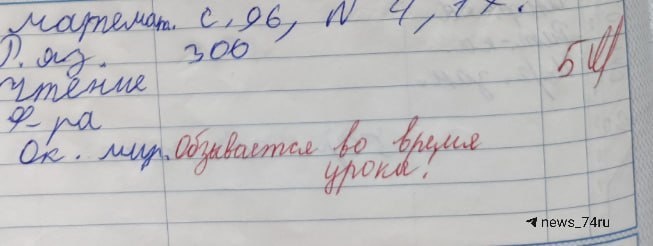 математ. с. 96, N 4, 17.
Р. яз. 306
5
Чтение
Ф-ра
Ок. мир. Обзывается во время
урока!
news_74ru